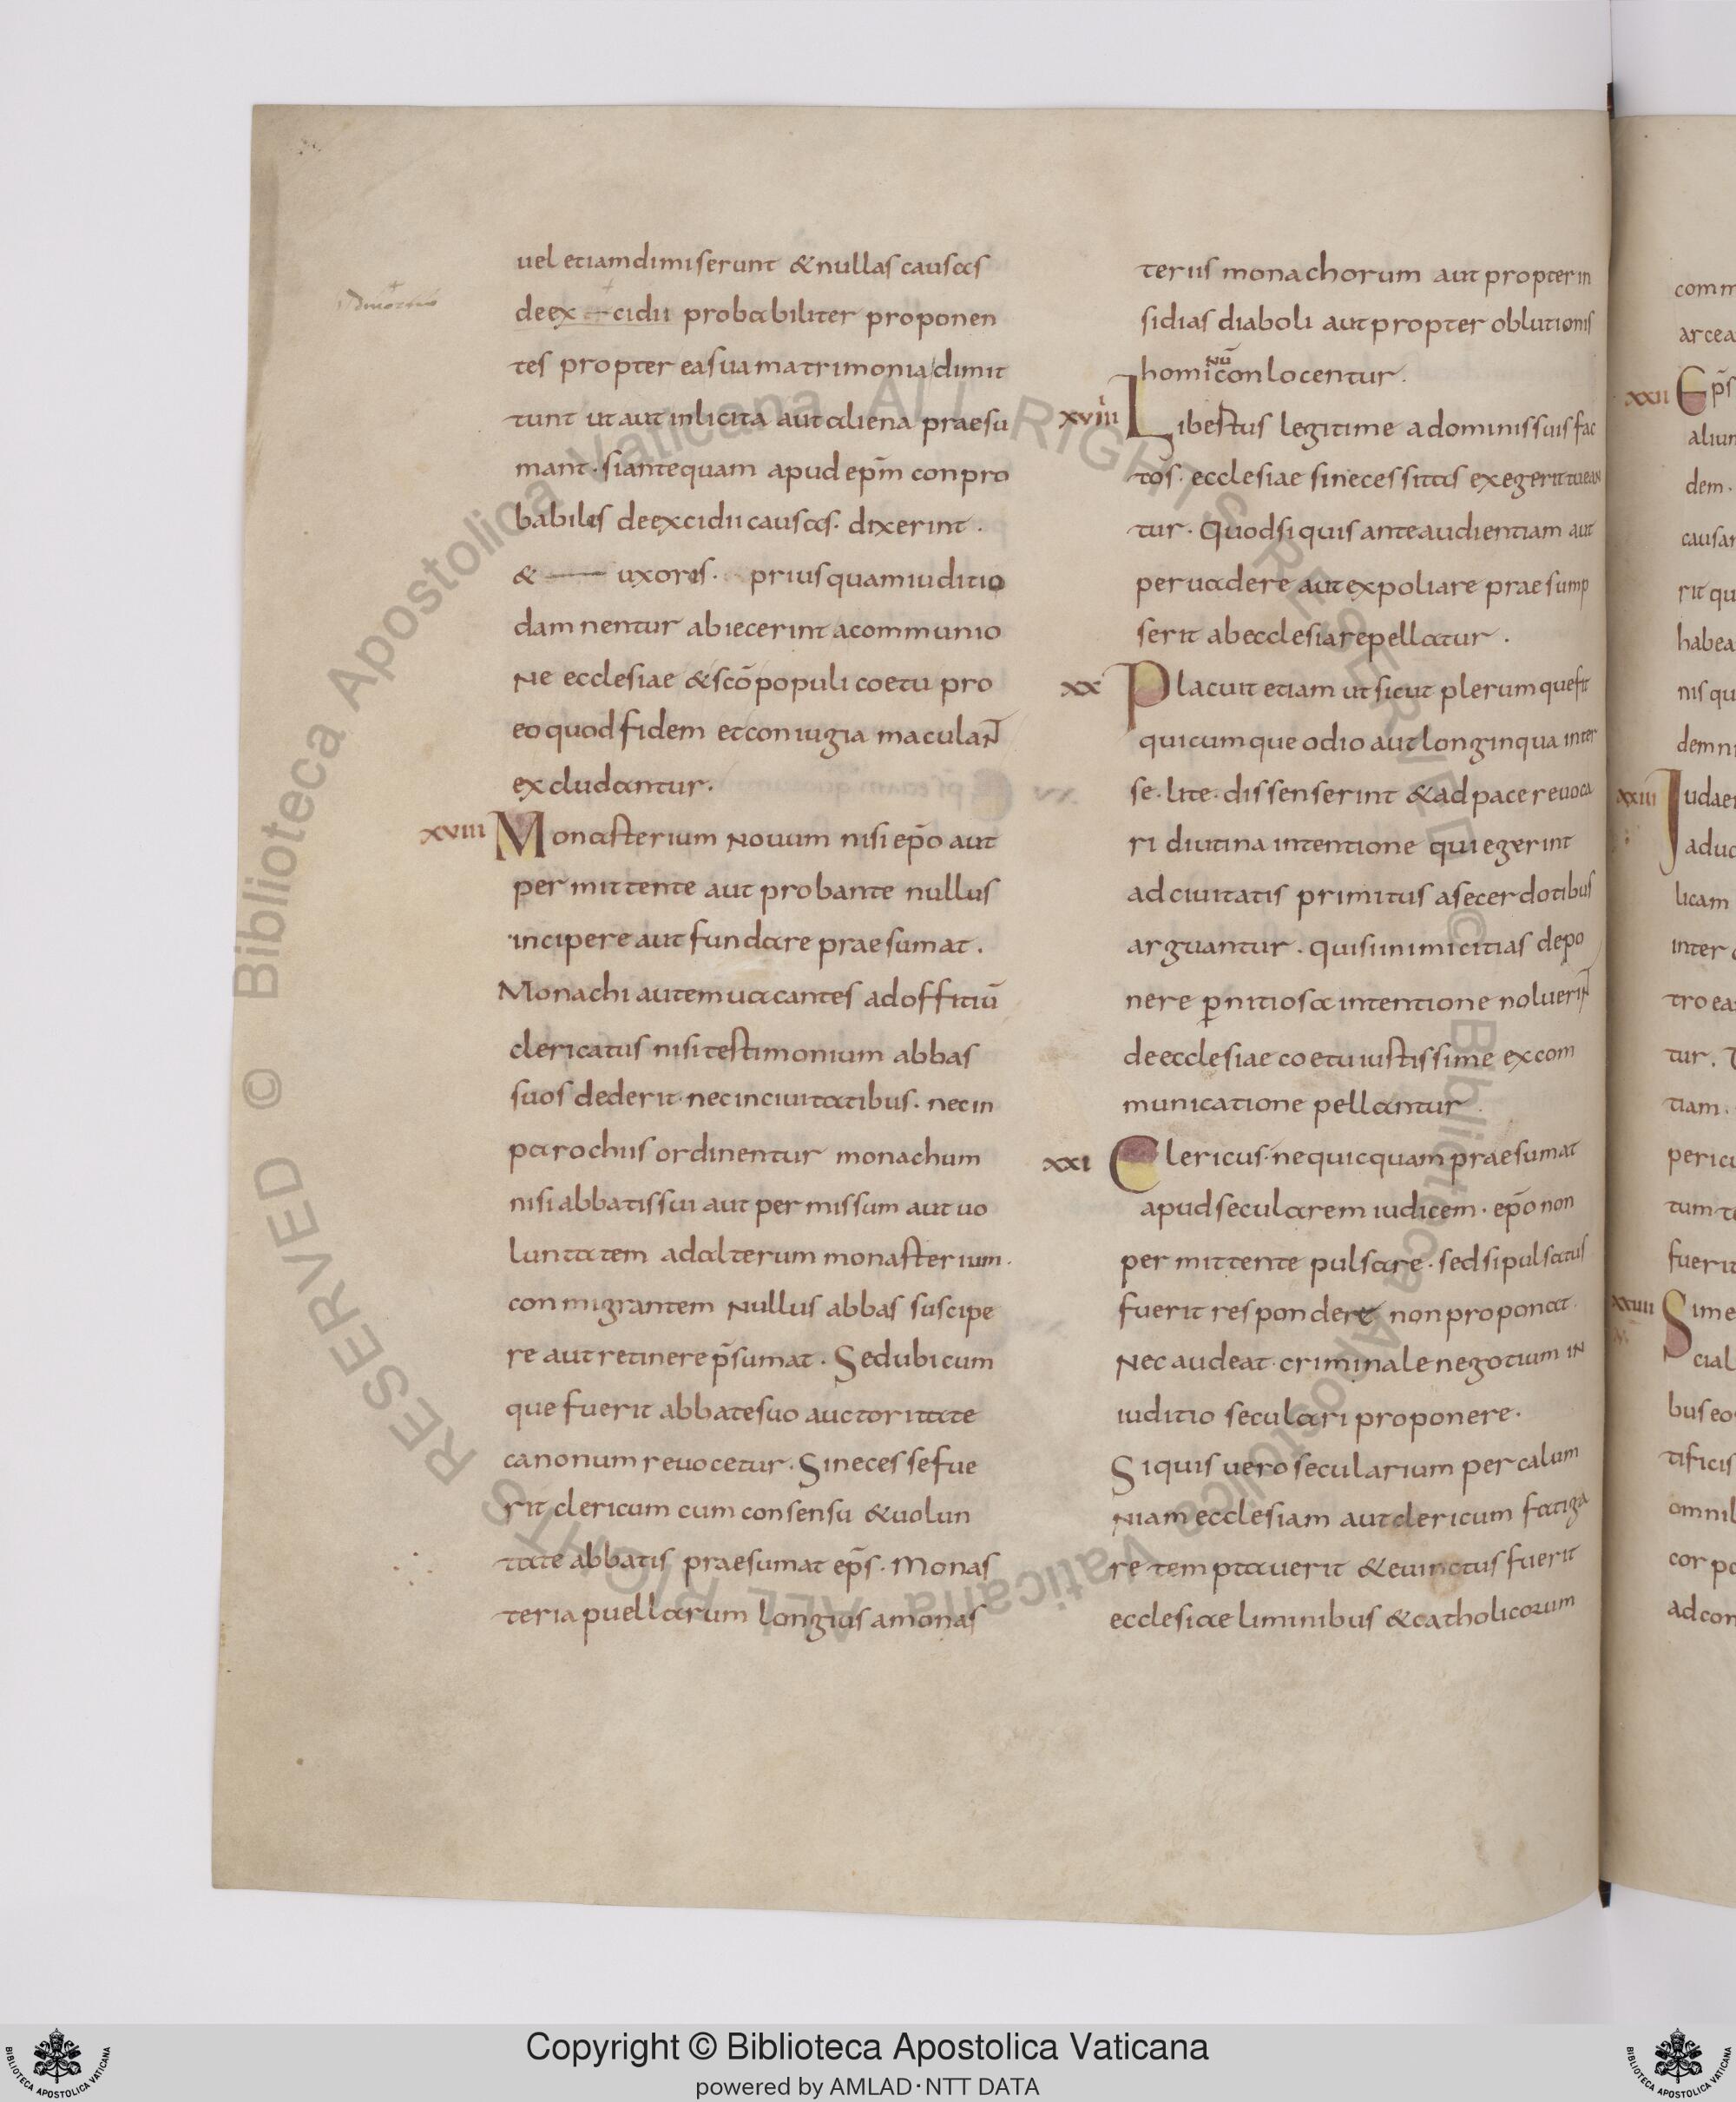 uel etiam dimiserunt & nullas causas
de ex cidii probabiliter proponen
tes propter ea sua matrimonia dimit
tunt ut aut inlicita aut aliena praesu
mant · si antequam apud ep̄m conpro
babiles de excidii causas · dixerint ·
& uxores · priusquam iuditio
damnentur abiecerint a communio
ne ecclesiae & sc̄o populi coetu pro
eo quod fidem et coniugia maculaN̄
excludantur ·
xviiii Monasterium nouum nisi ep̄o aut
permittente aut probante nullus
incipere aut fundare praesumat ·
Monachi autem uacantes ad offitiū
clericatus nisi testimonium abbas
suos dederit · nec in ciuitatibus · nec in
parochiis ordinentur monachum
nisi abbatis sui aut permissum aut uo
luntatem ad alterum monasterium ·
conmigrantem nullus abbas suscipe
re aut retinere p̄sumat · Sed ubicum
que fuerit abbate suo auctoritate
canonum reuocetur · Si necesse fue
rit clericum cum consensu & uolun
tate abbatis praesumat ep̄s · Monas
teria puellarum longius a monas
teriis monachorum aut propter in
sidias diaboli aut propter oblutionis
homi nū conlocentur ·
xviiii Libertus legitime a dominis suis fac
tos · ecclesiae si necessitas exegerit tuean
tur · Quod si quis ante audientiam aut
peruadere aut expoliare praesump
serit ab ecclesia repellatur ·
xx Placuit etiam ut sicut plerumque fit
quicumque odio aut longinqua inter
se · lite · dissenserint & ad pace reuoca
ri diutina intentione quiegerint
ad ciuitatis primitus a secerdotibus
arguantur · qui si inimicitias depo
nere ꝑnitiosa intentione noluerīN
de ecclesiae coetu iustissime excom
municatione pellantur
xxi Clericus · ne quicquam praesumat
apud secularem iudicem · ep̄o non
permittente pulsare · sed si pulsatus
fuerit respondere non proponat ·
Nec audeat · criminale negotium in
iuditio seculari proponere ·
Si quis uero secularium per calum
niam ecclesiam aut clericum fatiga
re temptauerit & euinctus fuerit
ecclesiae liminibus & catholicorum
comm
arcea
xxii Ep̄s
aliun
dem ·
causar
rit qu
habea
nis qu
dem ni
xxiii Iudaei
aduc
licam
inter
tro ea
tur ·
tiam ·
pericu
tum
fuerit
xxiiii Sime
cial
bus eo
tificis
omnib
corpo
ad con
Copyright © Biblioteca Apostolica Vaticana
powered by AMLAD·NTT DATA
© Biblioteca Apostolica Vaticana ALL RIGHTS RESERVED
BIBLIOTECA APOSTOLICA VATICANA
BIBLIOTECA APOSTOLICA VATICANA